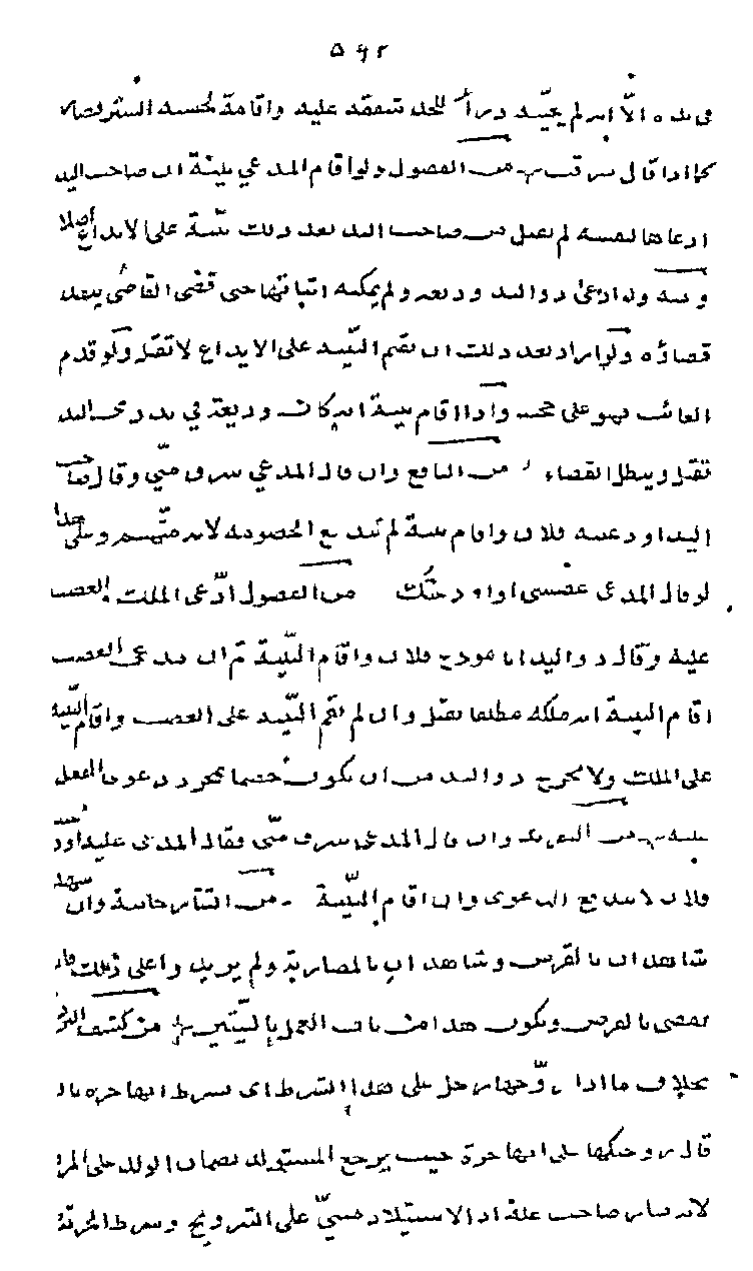 ٥٩٢
في يده الا انه لم يعينه درأ للحد شفقة عليه واقامة لحسبه الستر فصار
كما اذا قال سرقت من الفصول ولو اقام المدعي بينة ان صاحب اليد
ادعاها لنفسه لم تقبل من صاحب اليد بعد ذلك بينة على الايداع اصلا
وفيه ولو ادعى ذو اليد وديعة ولم يمكنه اثباتها حتى قضى القاضي ينفذ
قضاؤه ولو اراد بعد ذلك ان يقيم البينة على الايداع لا تقبل ولو قدم
الغائب فهو على حجته واذا اقام بينة انه كانت وديعة في يد ذي اليد
تقبل ويبطل القضاء من النافع وان قال المدعي سرق مني وقال صاحب
اليد اودعنيه فلان واقام بينة لم تندفع الخصومة لانه وعلى هذا
لو قال المدعي غصبني او اودعتك من الفصول ادعى الملك الغصب
عليه وقال ذو اليد انا مودع فلان واقام البينة ثم ان مدعي الغصب
اقام البينة انه ملكه مطلقا تقبل وان لم يقم البينة على الغصب واقام البينة
على الملك ولا يخرج ذو اليد من ان يكون خصما بمجرد دعوى الفعل
عليه من وان قال المدعي سرق مني فقال المدعى عليه اودعنيه
فلان لا تندفع الدعوى وان اقام البينة من وان شهد
شاهدان بالقرض وشاهدان بالمضاربة ولم يزيدوا على ذلك فانه
يقضى بالقرض ويكون هذا من باب العمل بالبينتين من كشف
بخلاف ما اذا زوجها رجل على هذا الشرط اي بشرط انها حرة بان
قال زوجتكها على انها حرة حيث يرجع المستولد بضمان الولد على المزوج
لانه صار صاحب علة اذ الاستيلاد مبني على التزويج وشرط الحرية